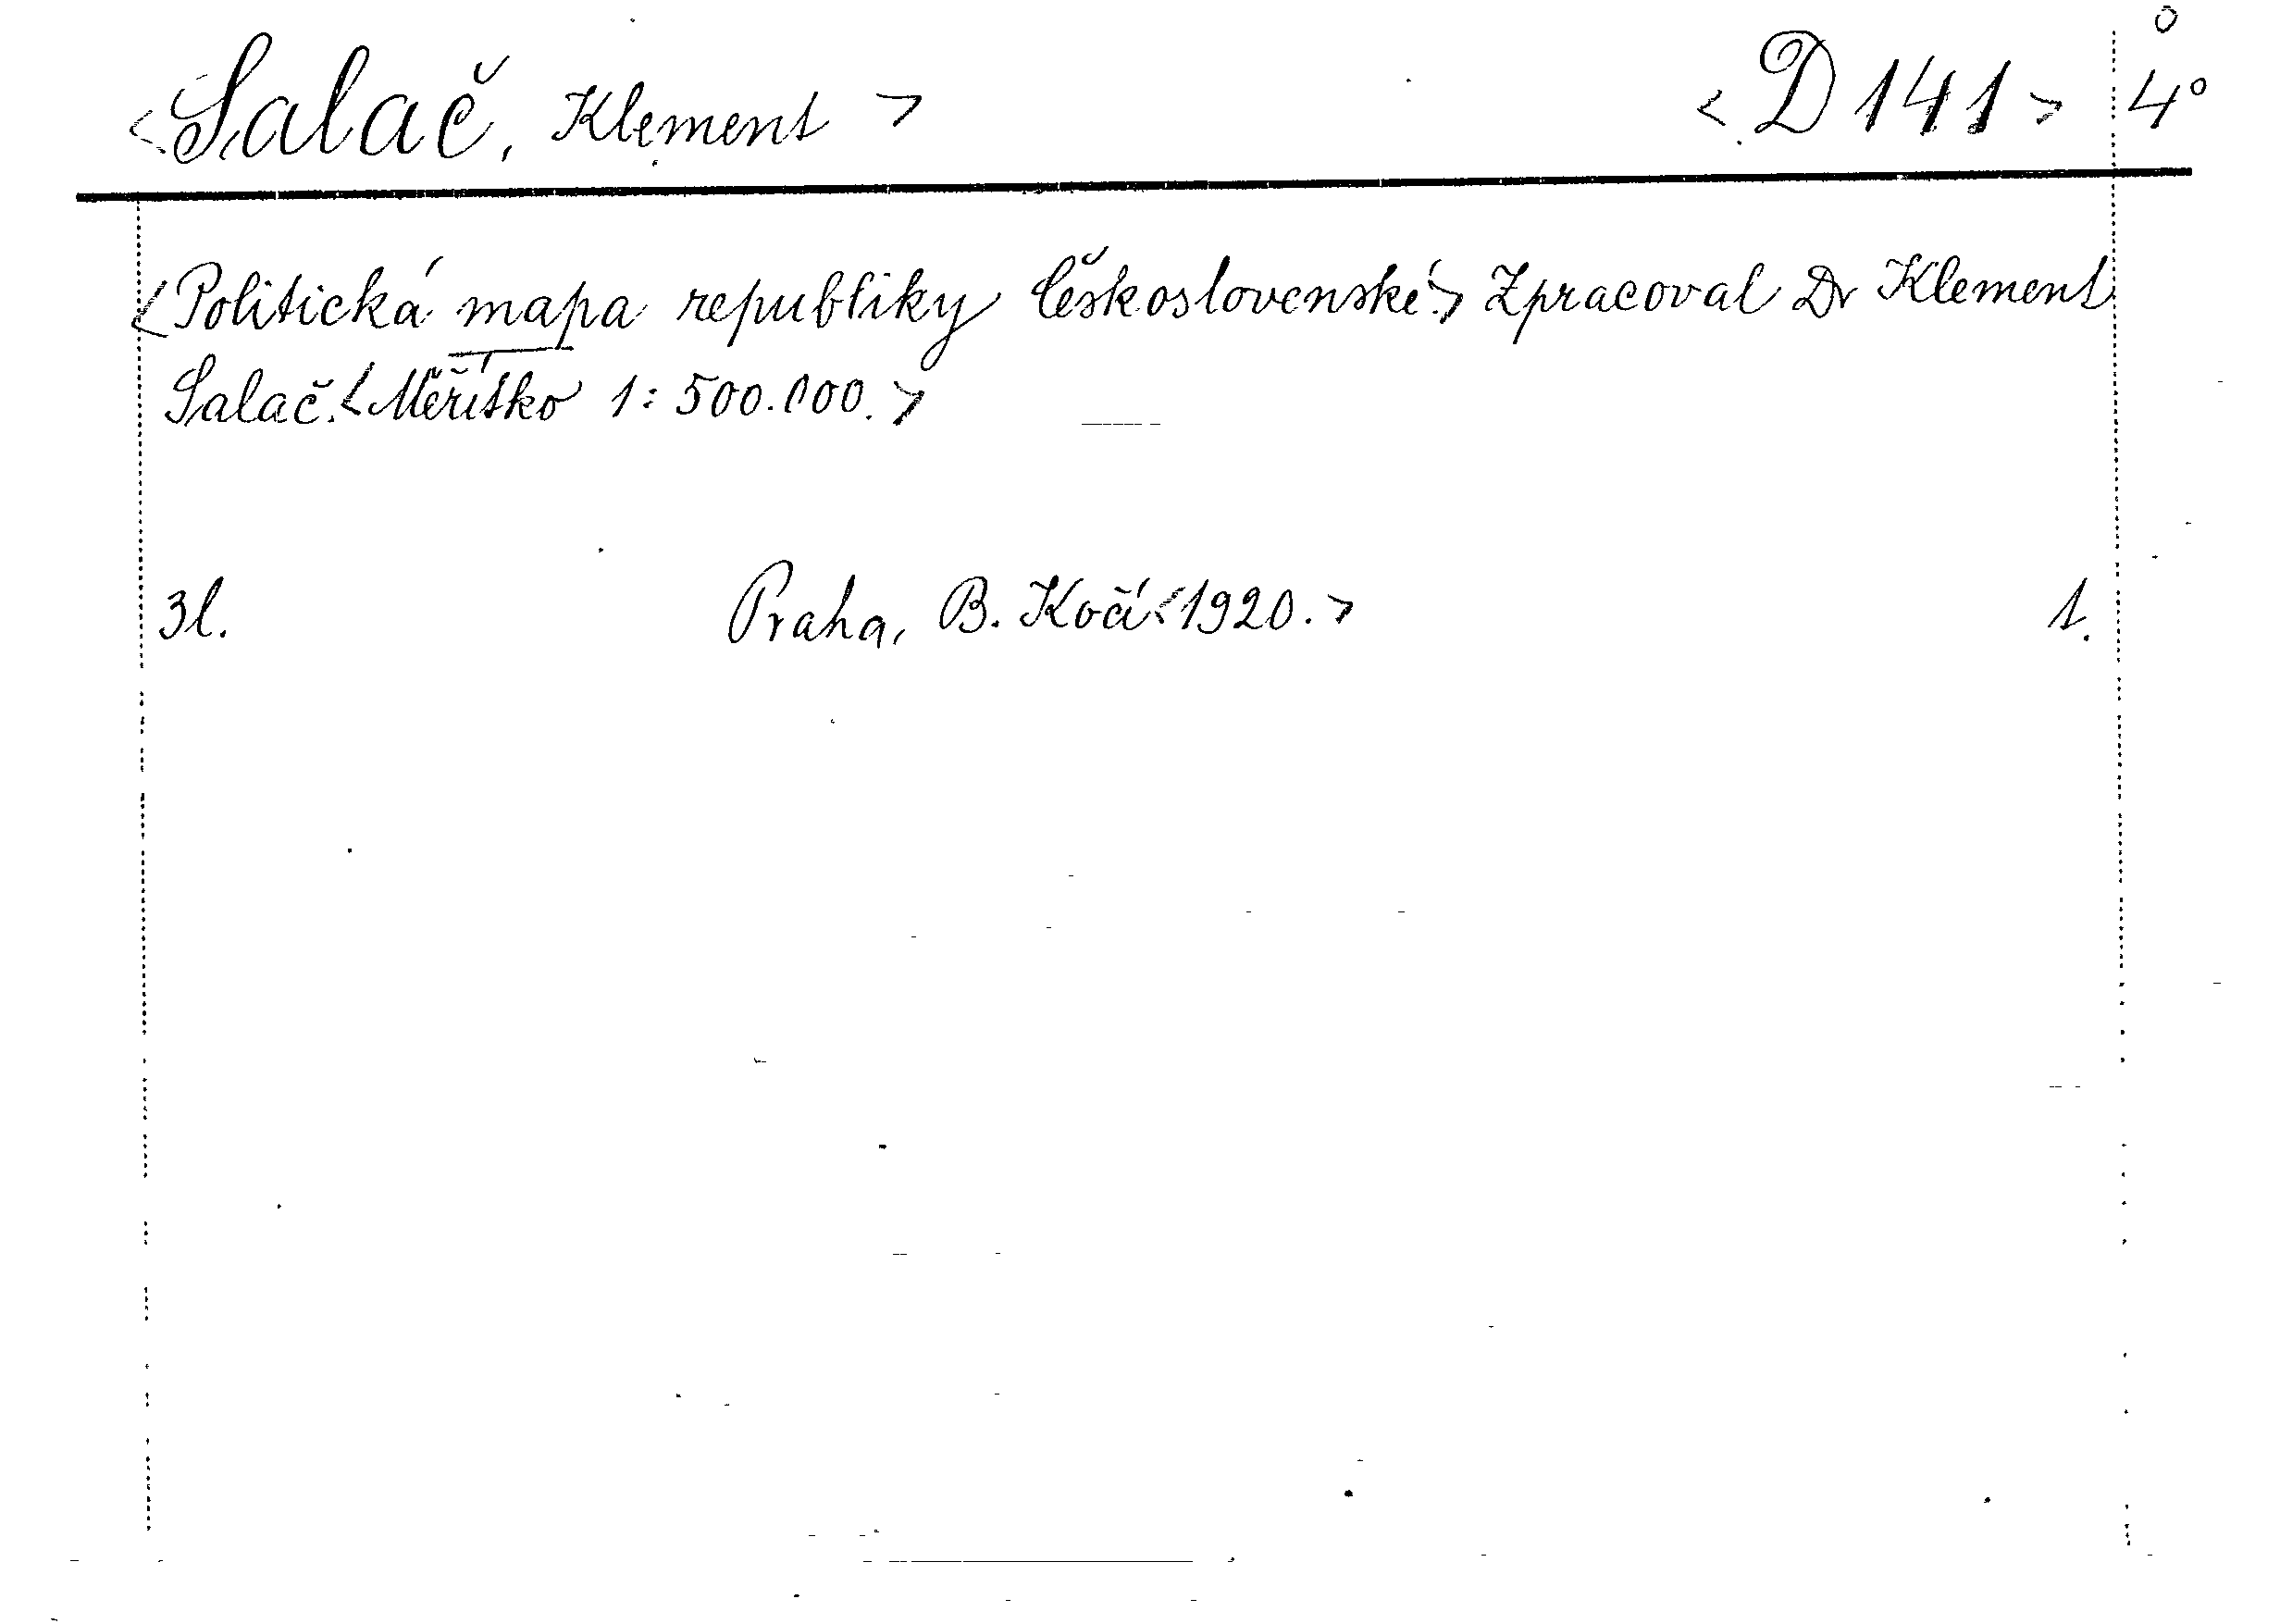 <Salač, Klement> <D 141> 4°
<Politická mapa republiky Československé.> Zpracoval Dr Klement
Salač.<Měřítko 1:500.000.>
3l. Praha, B. Kočí<1920.> 1.